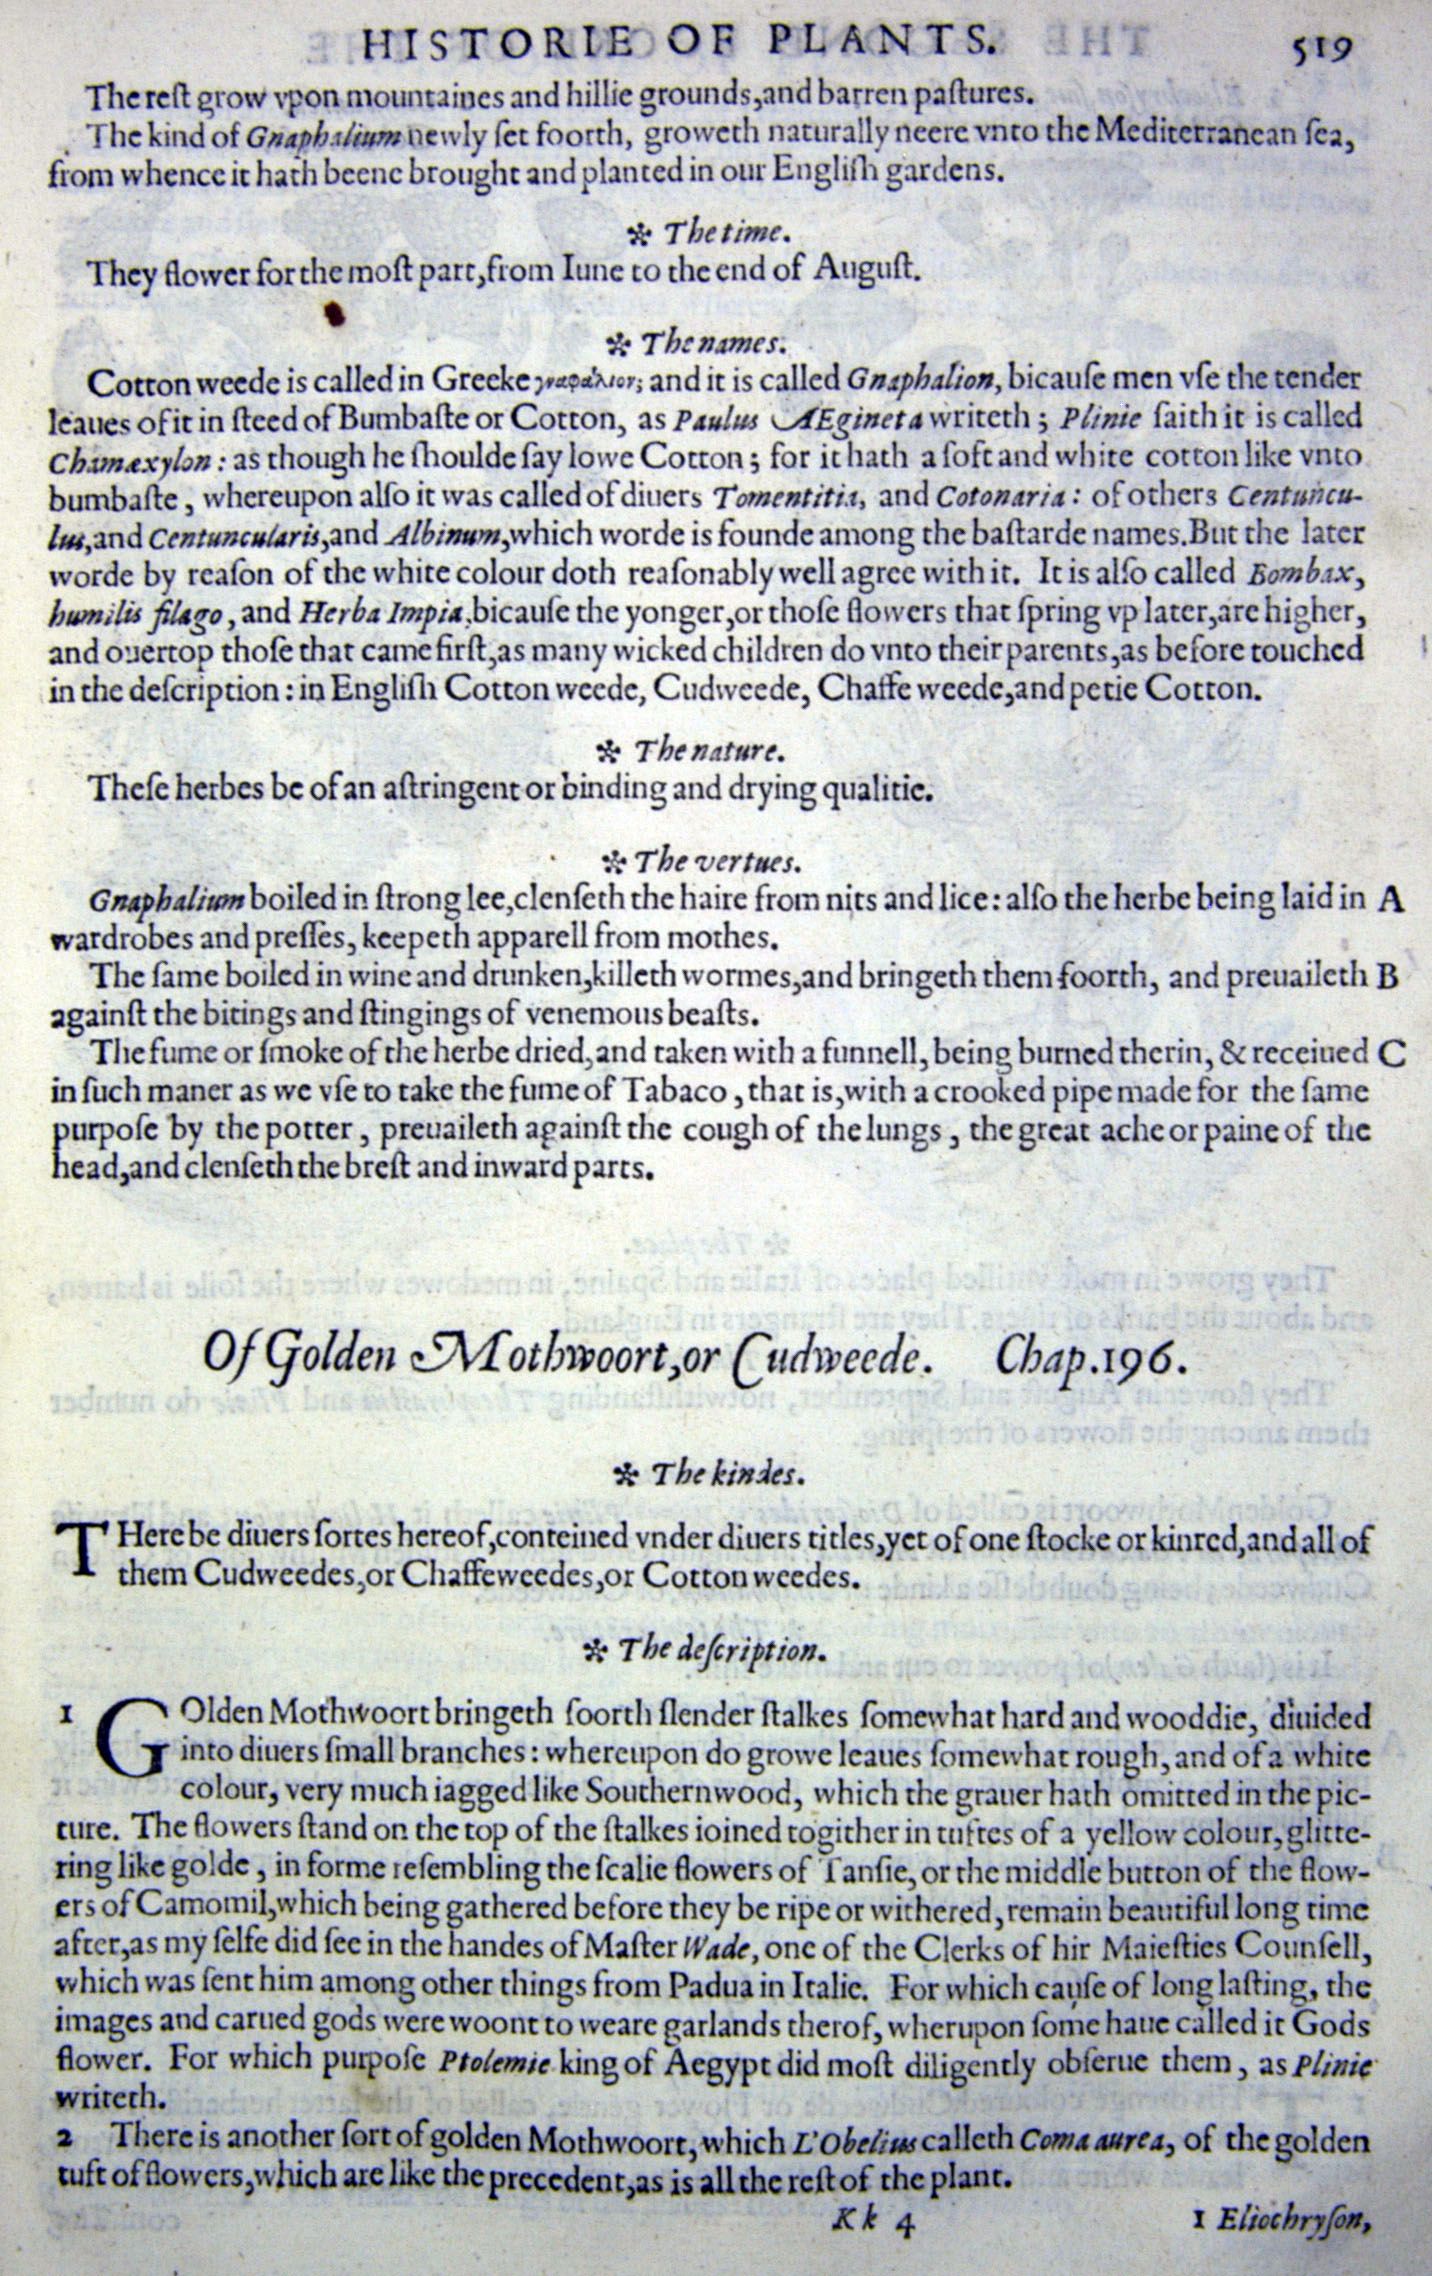 HISTORIE OF PLANTS. 519
The reſt grow vpon mountaines and hillie grounds,and barren paſtures.
The kind of Gnaphalium newly ſet foorth, groweth naturally neere vnto the Mediterranean ſea,
from whence it hath beene brought and planted in our Engliſh gardens.
✼ The time.
They flower for the moſt part,from Iune to the end of Auguſt.
✼ The names.
Cotton weede is called in Greeke γναφάλιον; and it is called Gnaphalion, bicauſe men vſe the tender
leaues of it in ſteed of Bumbaſte or Cotton, as Paulus AEgineta writeth ; Plinie ſaith it is called
Chamæxylon : as though he ſhoulde ſay lowe Cotton ; for it hath a ſoft and white cotton like vnto
bumbaſte , whereupon alſo it was called of diuers Tomentitia, and Cotonaria : of others Centuncu-
lus,and Centuncularis,and Albinum,which worde is founde among the baſtarde names.But the later
worde by reaſon of the white colour doth reaſonably well agree with it. It is alſo called Bombax,
humilis filago , and Herba Impia,bicauſe the yonger,or thoſe flowers that ſpring vp later,are higher,
and ouertop thoſe that came firſt,as many wicked children do vnto their parents,as before touched
in the deſcription : in Engliſh Cotton weede, Cudweede, Chaffe weede,and petie Cotton.
✼ The nature.
Theſe herbes be of an aſtringent or binding and drying qualitie.
✼ The vertues.
Gnaphalium boiled in ſtrong lee,clenſeth the haire from nits and lice : alſo the herbe being laid in A
wardrobes and preſſes, keepeth apparell from mothes.
The ſame boiled in wine and drunken,killeth wormes,and bringeth them foorth, and preuaileth B
againſt the bitings and ſtingings of venemous beaſts.
The fume or ſmoke of the herbe dried,and taken with a funnell, being burned therin, & receiued C
in ſuch maner as we vſe to take the fume of Tabaco , that is,with a crooked pipe made for the ſame
purpoſe by the potter , preuaileth againſt the cough of the lungs , the great ache or paine of the
head,and clenſeth the breſt and inward parts.
Of Golden Mothwoort,or Cudweede. Chap.196.
✼ The kindes.
THere be diuers ſortes hereof,conteined vnder diuers titles,yet of one ſtocke or kinred,and all of
them Cudweedes,or Chaffeweedes,or Cotton weedes.
✼ The deſcription.
1 GOlden Mothwoort bringeth foorth ſlender ſtalkes ſomewhat hard and wooddie, diuided
into diuers ſmall branches : whereupon do growe leaues ſomewhat rough, and of a white
colour, very much iagged like Southernwood, which the grauer hath omitted in the pic-
ture. The flowers ſtand on the top of the ſtalkes ioined togither in tuftes of a yellow colour, glitte-
ring like golde , in forme reſembling the ſcalie flowers of Tanſie, or the middle button of the flow-
ers of Camomil,which being gathered before they be ripe or withered, remain beautiful long time
after,as my ſelfe did ſee in the handes of Maſter Wade, one of the Clerks of hir Maieſties Counſell,
which was ſent him among other things from Padua in Italie. For which cauſe of long laſting, the
images and carued gods were woont to weare garlands therof, wherupon ſome haue called it Gods
flower. For which purpoſe Ptolemie king of Aegypt did moſt diligently obſerue them , as Plinie
writeth.
2 There is another ſort of golden Mothwoort, which L'Obelius calleth Coma aurea, of the golden
tuft of flowers,which are like the precedent,as is all the reſt of the plant.
Kk 4 1 Eliochryſon,